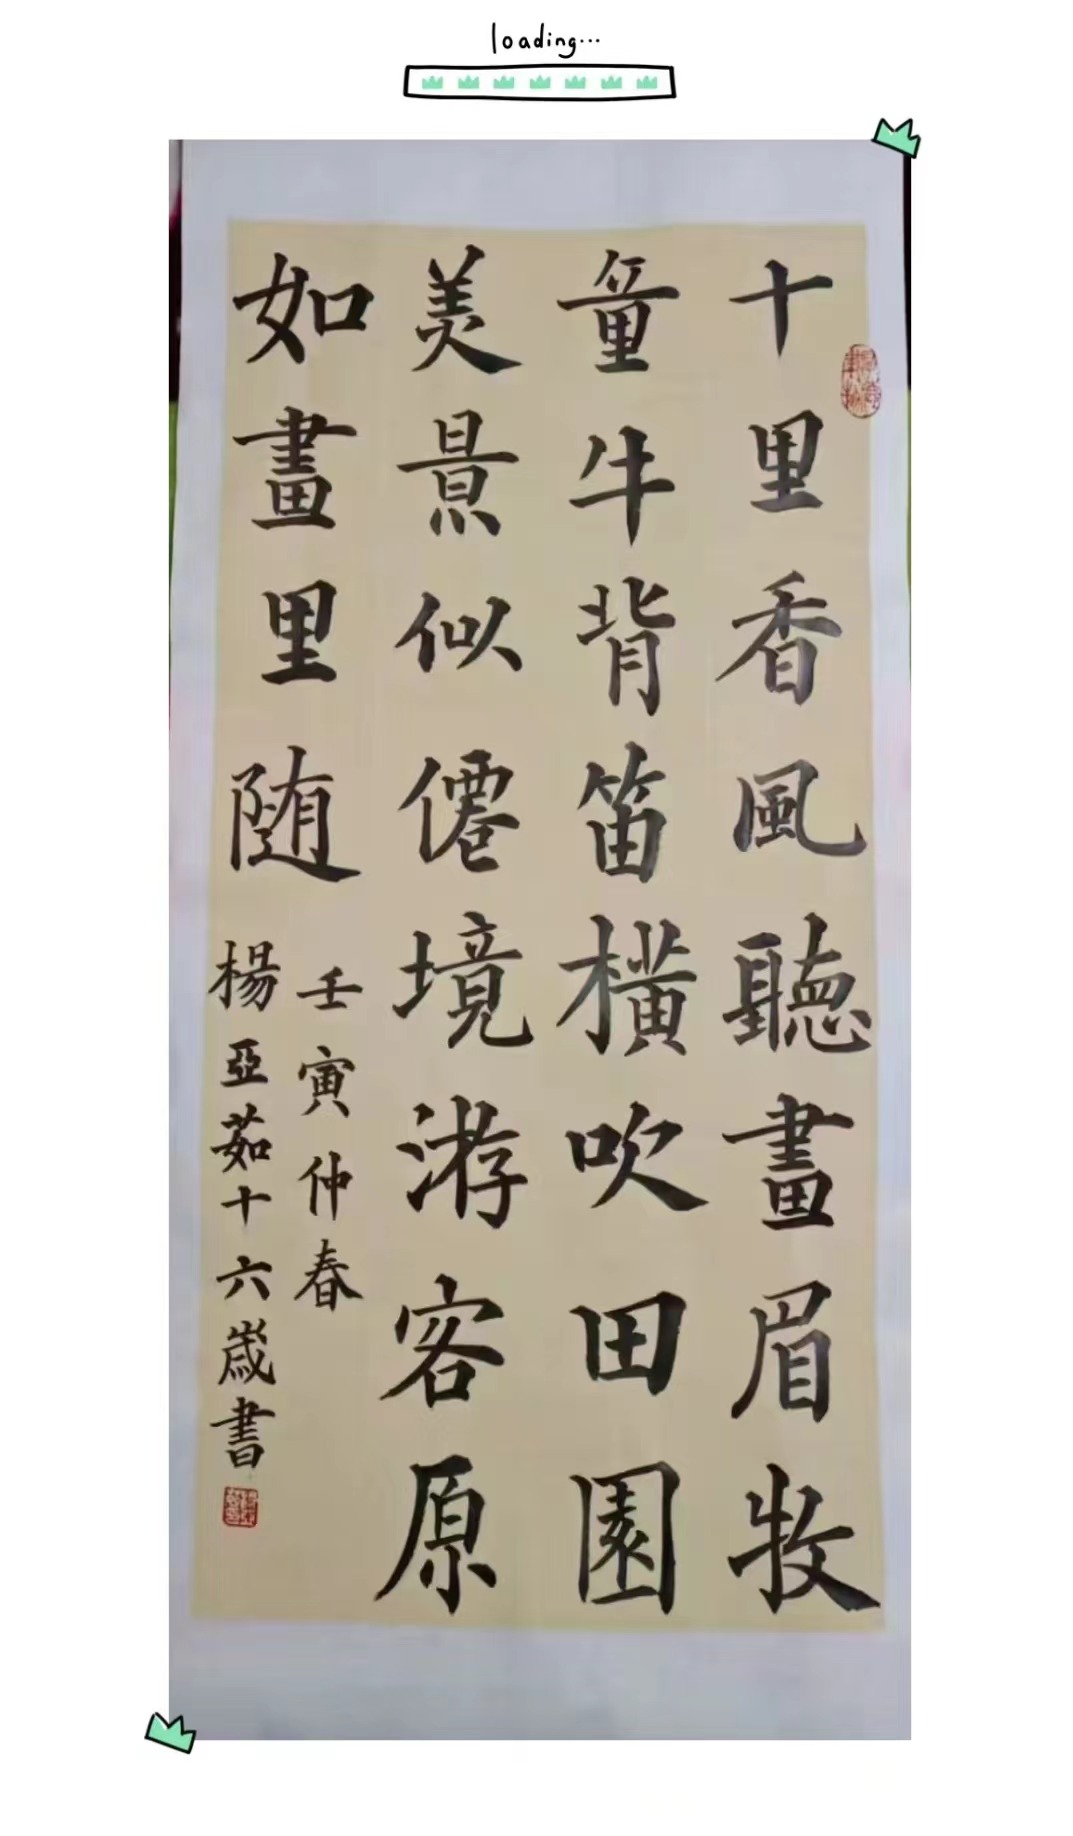 loading...
十里香風聽畫眉牧
童牛背笛橫吹田園
美景似僊境游客原
如畫里随
壬寅仲春
楊亞茹十六歲書